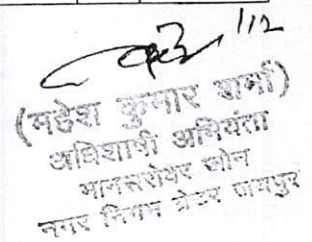 1/12
(महेश कुमार शर्मा)
अधिशाषी अभियंता
मानसरोवर जोन
नगर निगम ग्रेटर जयपुर